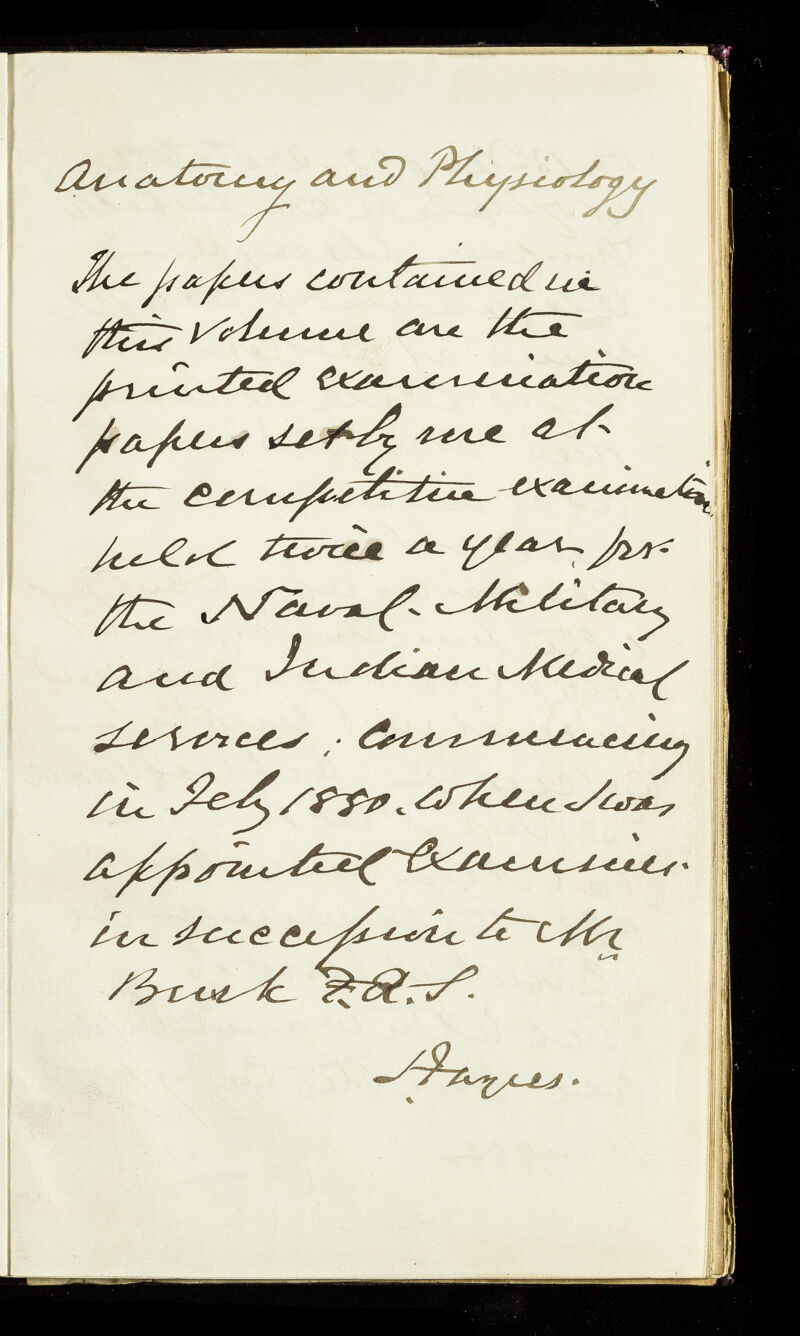 Anatomy and Physiology
The papers contained in
this Volume are the
printed examination
papers set by me at
the competitive examination
held twice a year for
the Naval. Military
and Indian Medical
services; commencing
in Feby 1880. when I was
appointed Examiner
in succession to Mr
Busk F.R.S.